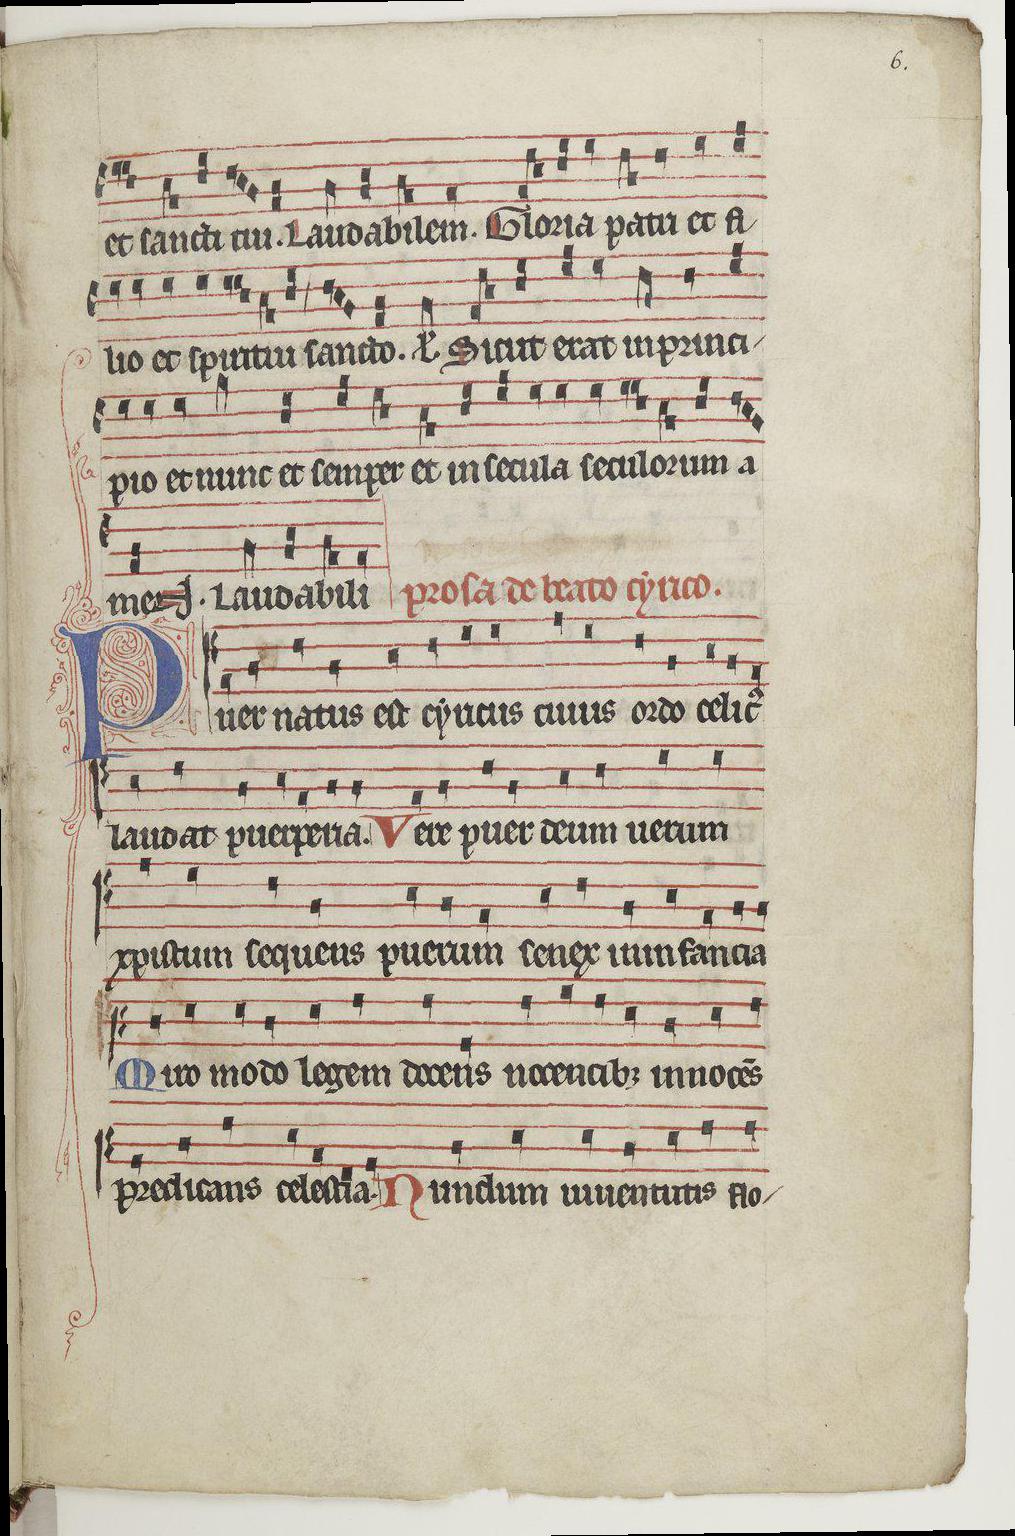 6.
et sancti tui. Laudabilem. Gloria patri et fi
lio et spiritui sancto. Sicut erat in princi
pio et nunc et semper et in secula seculorum a
men. Laudabili prosa de beato cyrico.
Puer natus est cyricus cuius ordo celicꝰ
laudat puerperia. Vere puer deum uerum
xpistum sequens puerum senex in infancia
Miro modo legem docens nocentibꝫ innocēs
predicans celestia. Nundum iuuentutis flo